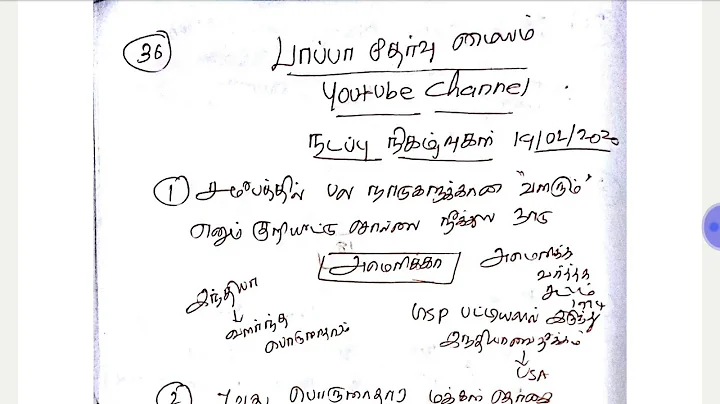 36
பாப்பா தேர்வு மையம்
Youtube Channel
நடப்பு நிகழ்வுகள் 19/02/2020
1 சமீபத்தில் பல நாடுகளுக்கான "வளரும்"
எனும் குறியீட்டு சொல்லை நீக்கிய நாடு
அமெரிக்கா
இந்தியா
வளர்ந்த
பொருளாதாரம்
அமெரிக்க
வர்த்தக
சட்டம்
1974
GSP பட்டியலில் இருந்து
இந்தியாவை நீக்கம்
USA
2 7வது பொருளாதார மக்கள் தொகை